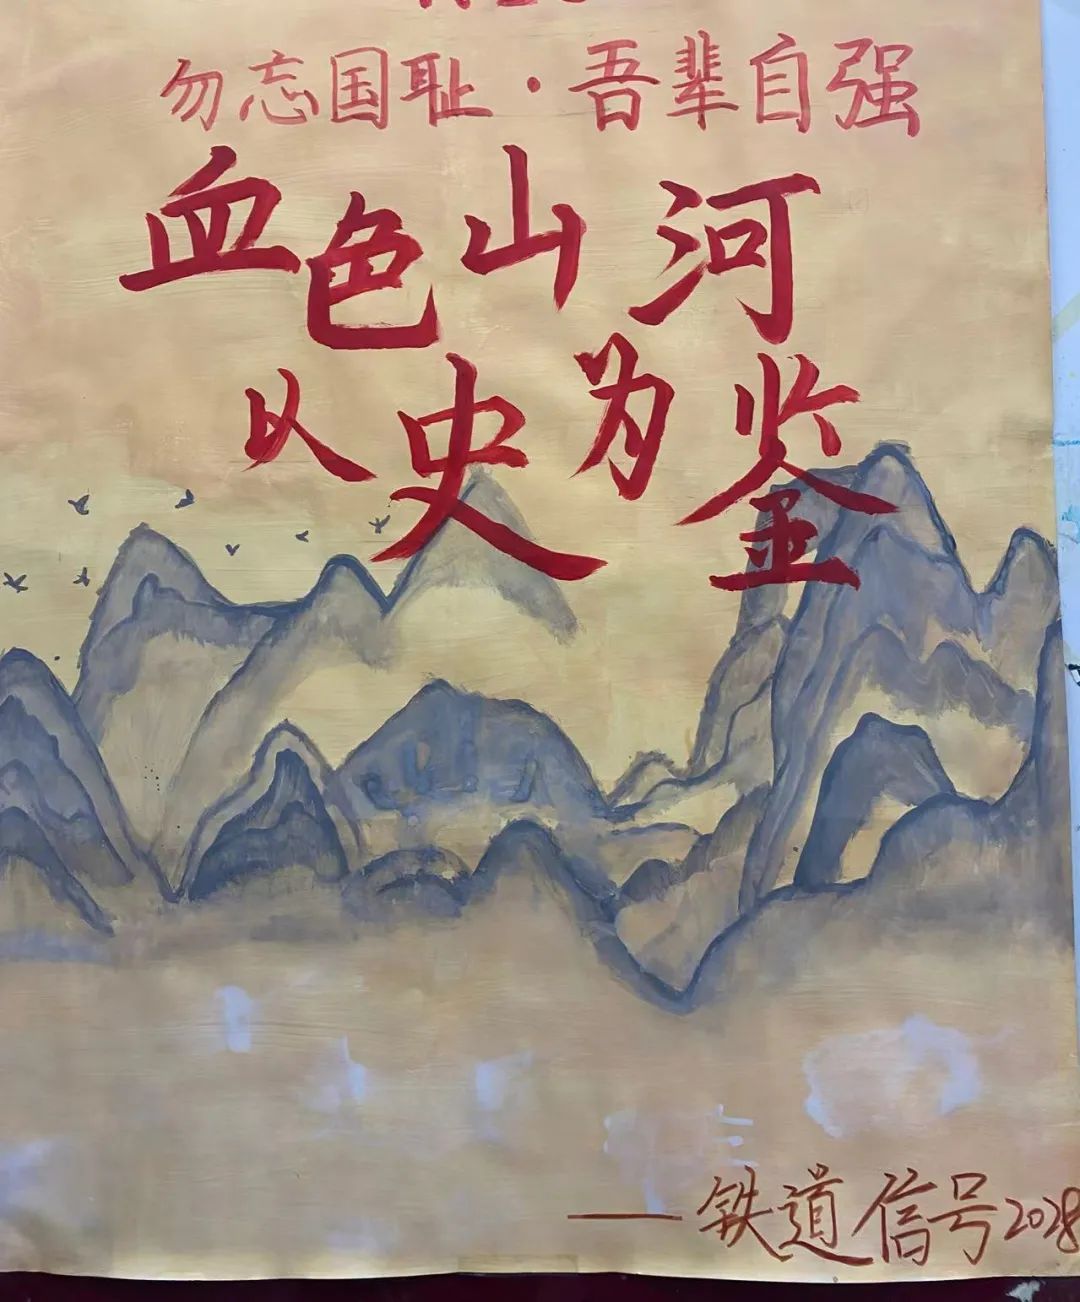 勿忘国耻·吾辈自强
血色山河
以史为鉴
——铁道信号2028